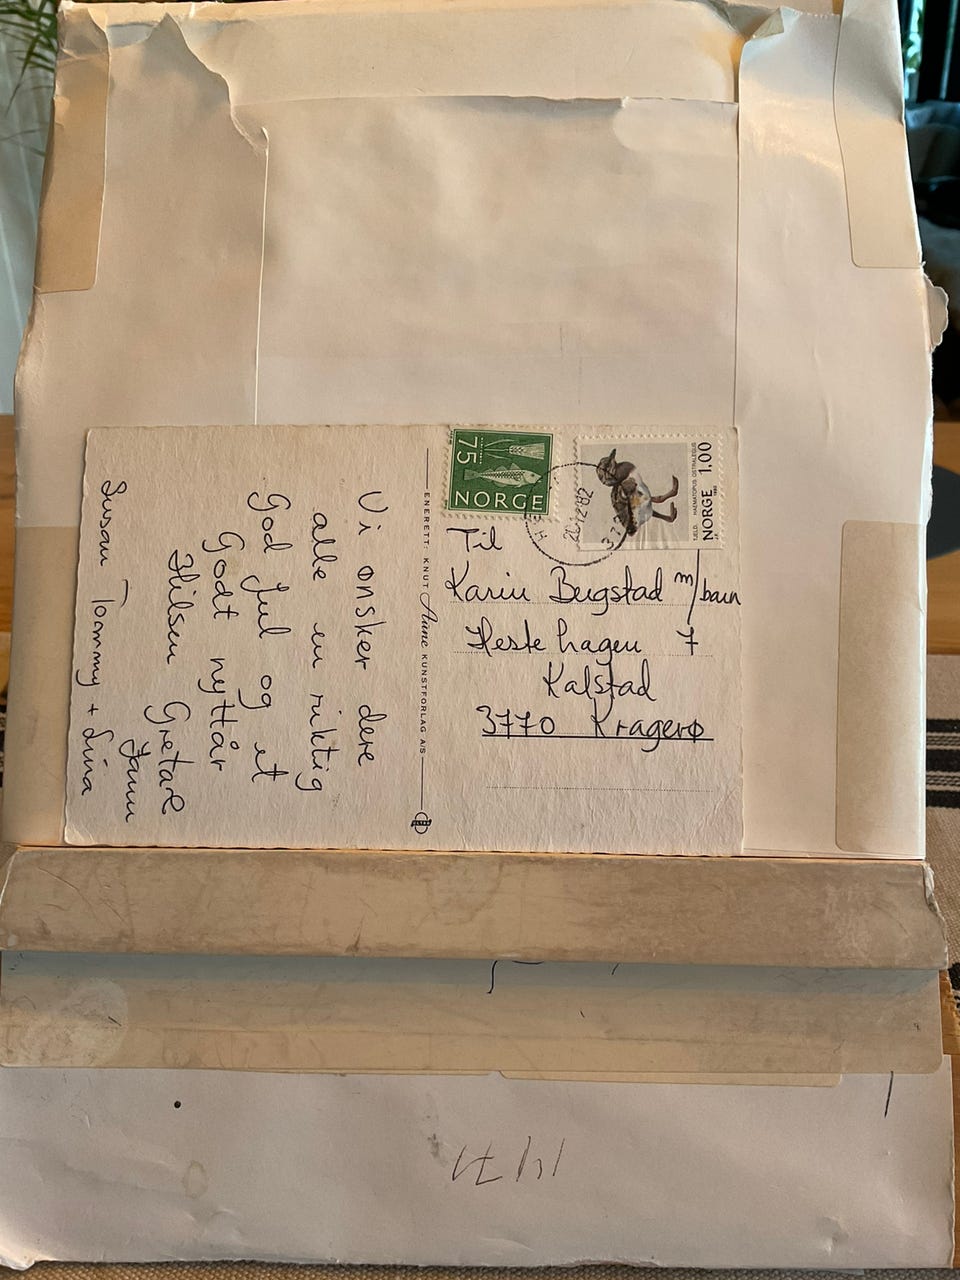 Vi ønsker dere
alle en riktig
God Jul og et
Godt nyttår
Hilsen Gretar
Susan – Tommy + Lina
ENERETT: KNUT Aune KUNSTFORLAG A/S
75
NORGE
TJELD HAEMATOPUS OSTRALEGUS
NORGE 1.00
Til
Karin Bugstad m/barn
Hestehagen 7
Kalstad
3770 Kragerø